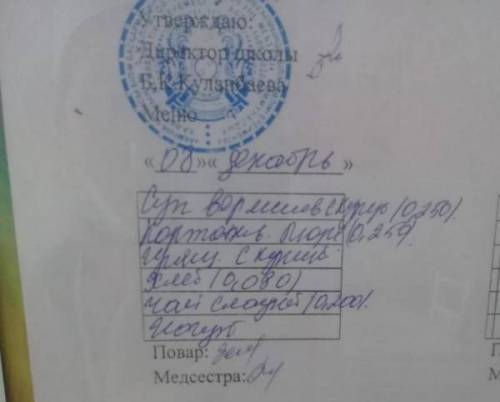 Утверждаю:
Директор школы
Б.К Куланбаева
Меню
« 08 » « декабрь »
Суп вермишев с кур (0,250).
Картофель. Пюре (0,250).
с куриц.
Хлеб (0,080)
Чай сладкий (0,200).
Йогурт
Повар:
Медсестра: